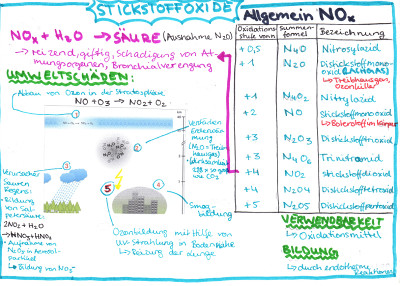 STICKSTOFFOXIDE
NOx + H2O → SÄURE (Ausnahme N2O)
↳ reizend, giftig, Schädigung von At-
mungsorganen, Bronchialverengung
UMWELTSCHÄDEN:
Abbau von Ozon in der Stratosphäre
NO + O3 → NO2 + O2
1
2
3
4
5
Verursacher
Sauren
Regens:
Bildung
von Sal-
petersäure:
2NO2 + H2O
→ HNO2 + HNO3
Aufnahme von
N2O5 in Aerosol-
partikel
↳ Bildung von NO3-
Ozonbildung mit Hilfe von
UV-Strahlung in Bodennähe
↳ Reizung der Lunge
Smog-
bildung
Allgemein NOx
Oxidations-
stufe von N
Summen-
formel
Bezeichnung
+0,5 N4O Nitrosylazid
+1 N2O Distickstoffmonoxid (LACHGAS)
↳ Treibhausgas, Ozonkiller
+1 N4O2 Nitrylazid
+2 NO Stickstoffmonoxid
↳ Botenstoff im Körper
+3 N2O3 Distickstofftrioxid
+3 N4O6 Trinitramid
+4 NO2 Stickstoffdioxid
+4 N2O4 Distickstofftetroxid
+5 N2O5 Distickstoffpentoxid
VERWENDBARKEIT
↳ Oxidationsmittel
BILDUNG
↳ durch endotherme
Reaktionen